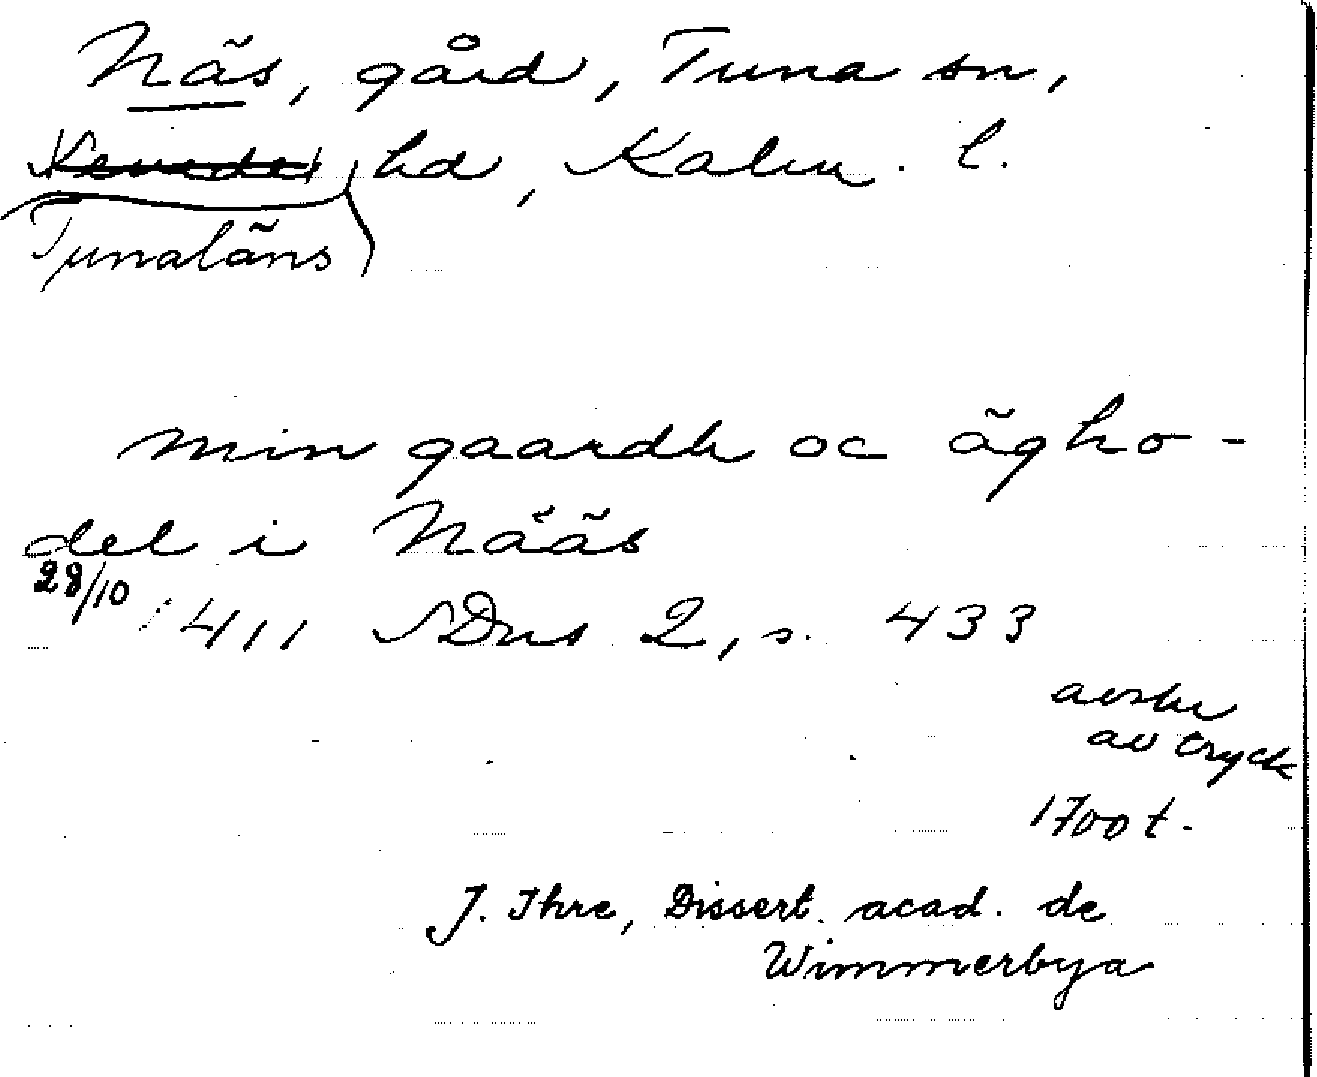 Näs, gård, Tuna sn,
hd, Kalm. l.
Tunaläns
min gaardh oc ägho-
del i Nääs
28/10 1411 SDns 2, s. 433
avskr
av tryck
1700 t.
J. Ihre, Dissert. acad. de
Wimmerbya